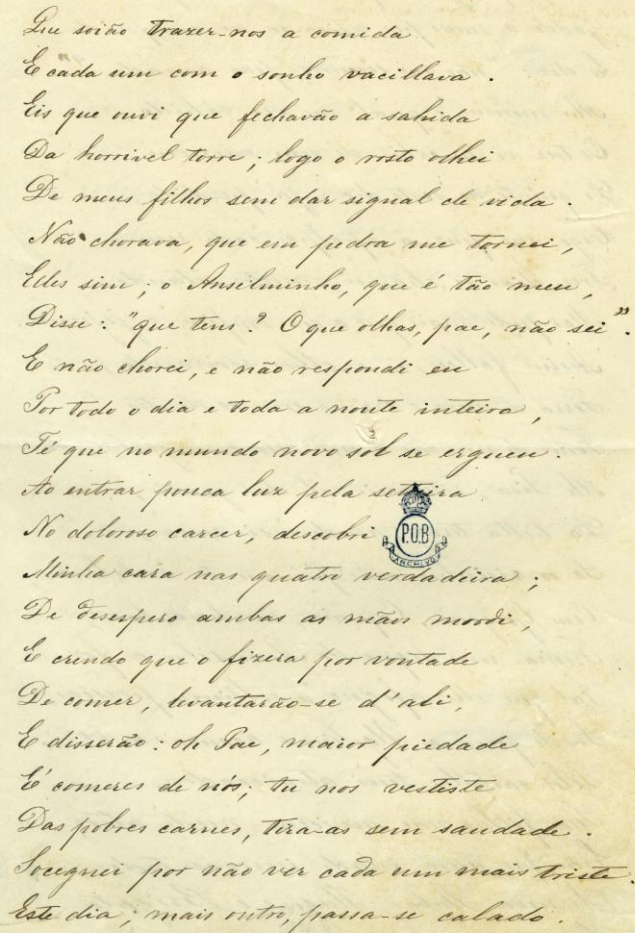 Que soião trazer-nos a comida
E cada um com o sonho vacillava.
Eis que ouvi que fechavão a sahida
Da horrivel torre; logo o rosto olhei
De meus filhos sem dar signal de vida.
Não chorava, que em pedra me tornei,
Elles sim; o Anselminho, que é tão meu,
Disse: "que tens? O que olhas, pae, não sei".
E não chorei, e não respondi eu
Por todo o dia e toda a noute inteira,
Té que no mundo novo sol se ergueu.
Ao entrar pouca luz pela setteira
No doloroso carcer, descobri
P.O.B
ARCHIVO
Minha cara nas quatro verdadeira;
De desespero ambas as mãos mordi,
E crendo que o fizera por vontade
De comer, levantarão-se d'ali,
E disserão: oh Pae, maior piedade
É comeres de nós; tu nos vestiste
Das pobres carnes, tira-as sem saudade.
Soceguei por não ver cada um mais triste.
Este dia; mais outro, passa-se calado.